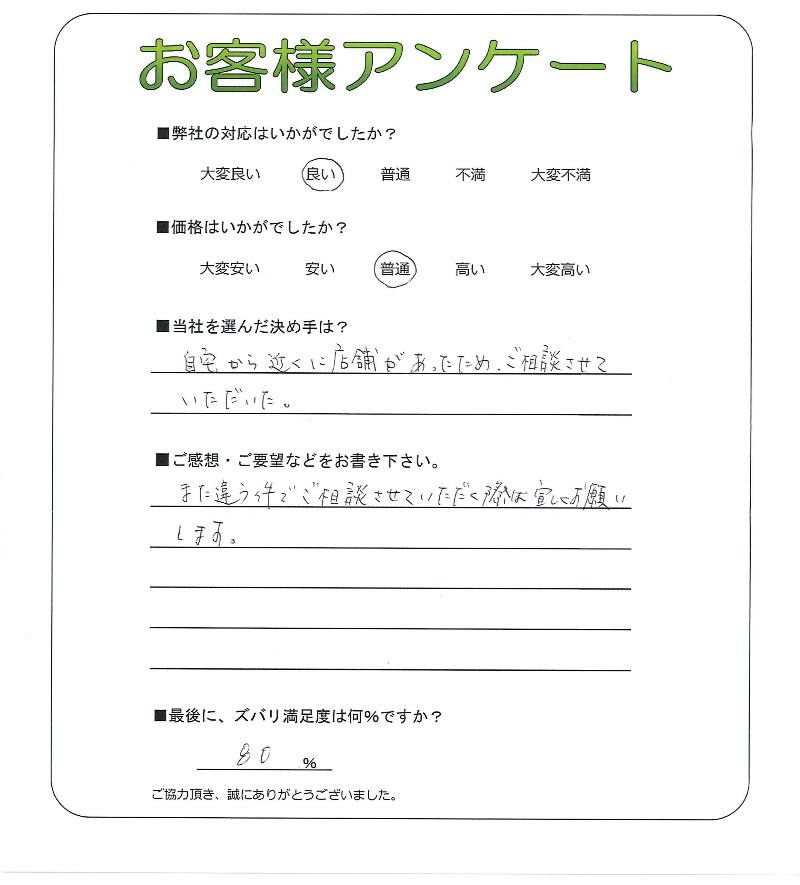 お客様アンケート
■弊社の対応はいかがでしたか？
大変良い 良い 普通 不満 大変不満
■価格はいかがでしたか？
大変安い 安い 普通 高い 大変高い
■当社を選んだ決め手は？
自宅から近くに店舗があったため、ご相談させて
いただいた。
■ご感想・ご要望などをお書き下さい。
また違う件でご相談させていただく際は宜しくお願い
します。
■最後に、ズバリ満足度は何%ですか？
80 %
ご協力頂き、誠にありがとうございました。